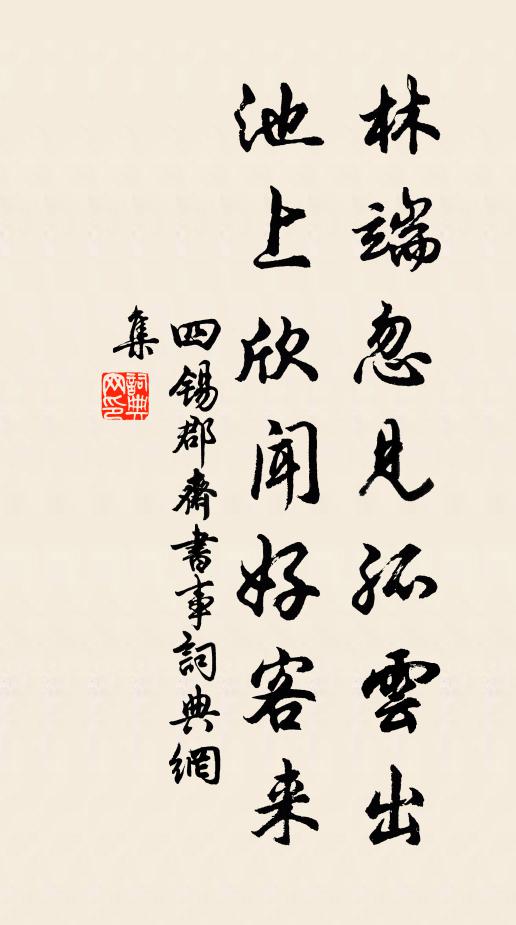 林端忽見孤雲出
池上欣聞好客来
四锡郡齋書事詞典網
集
詞典网印